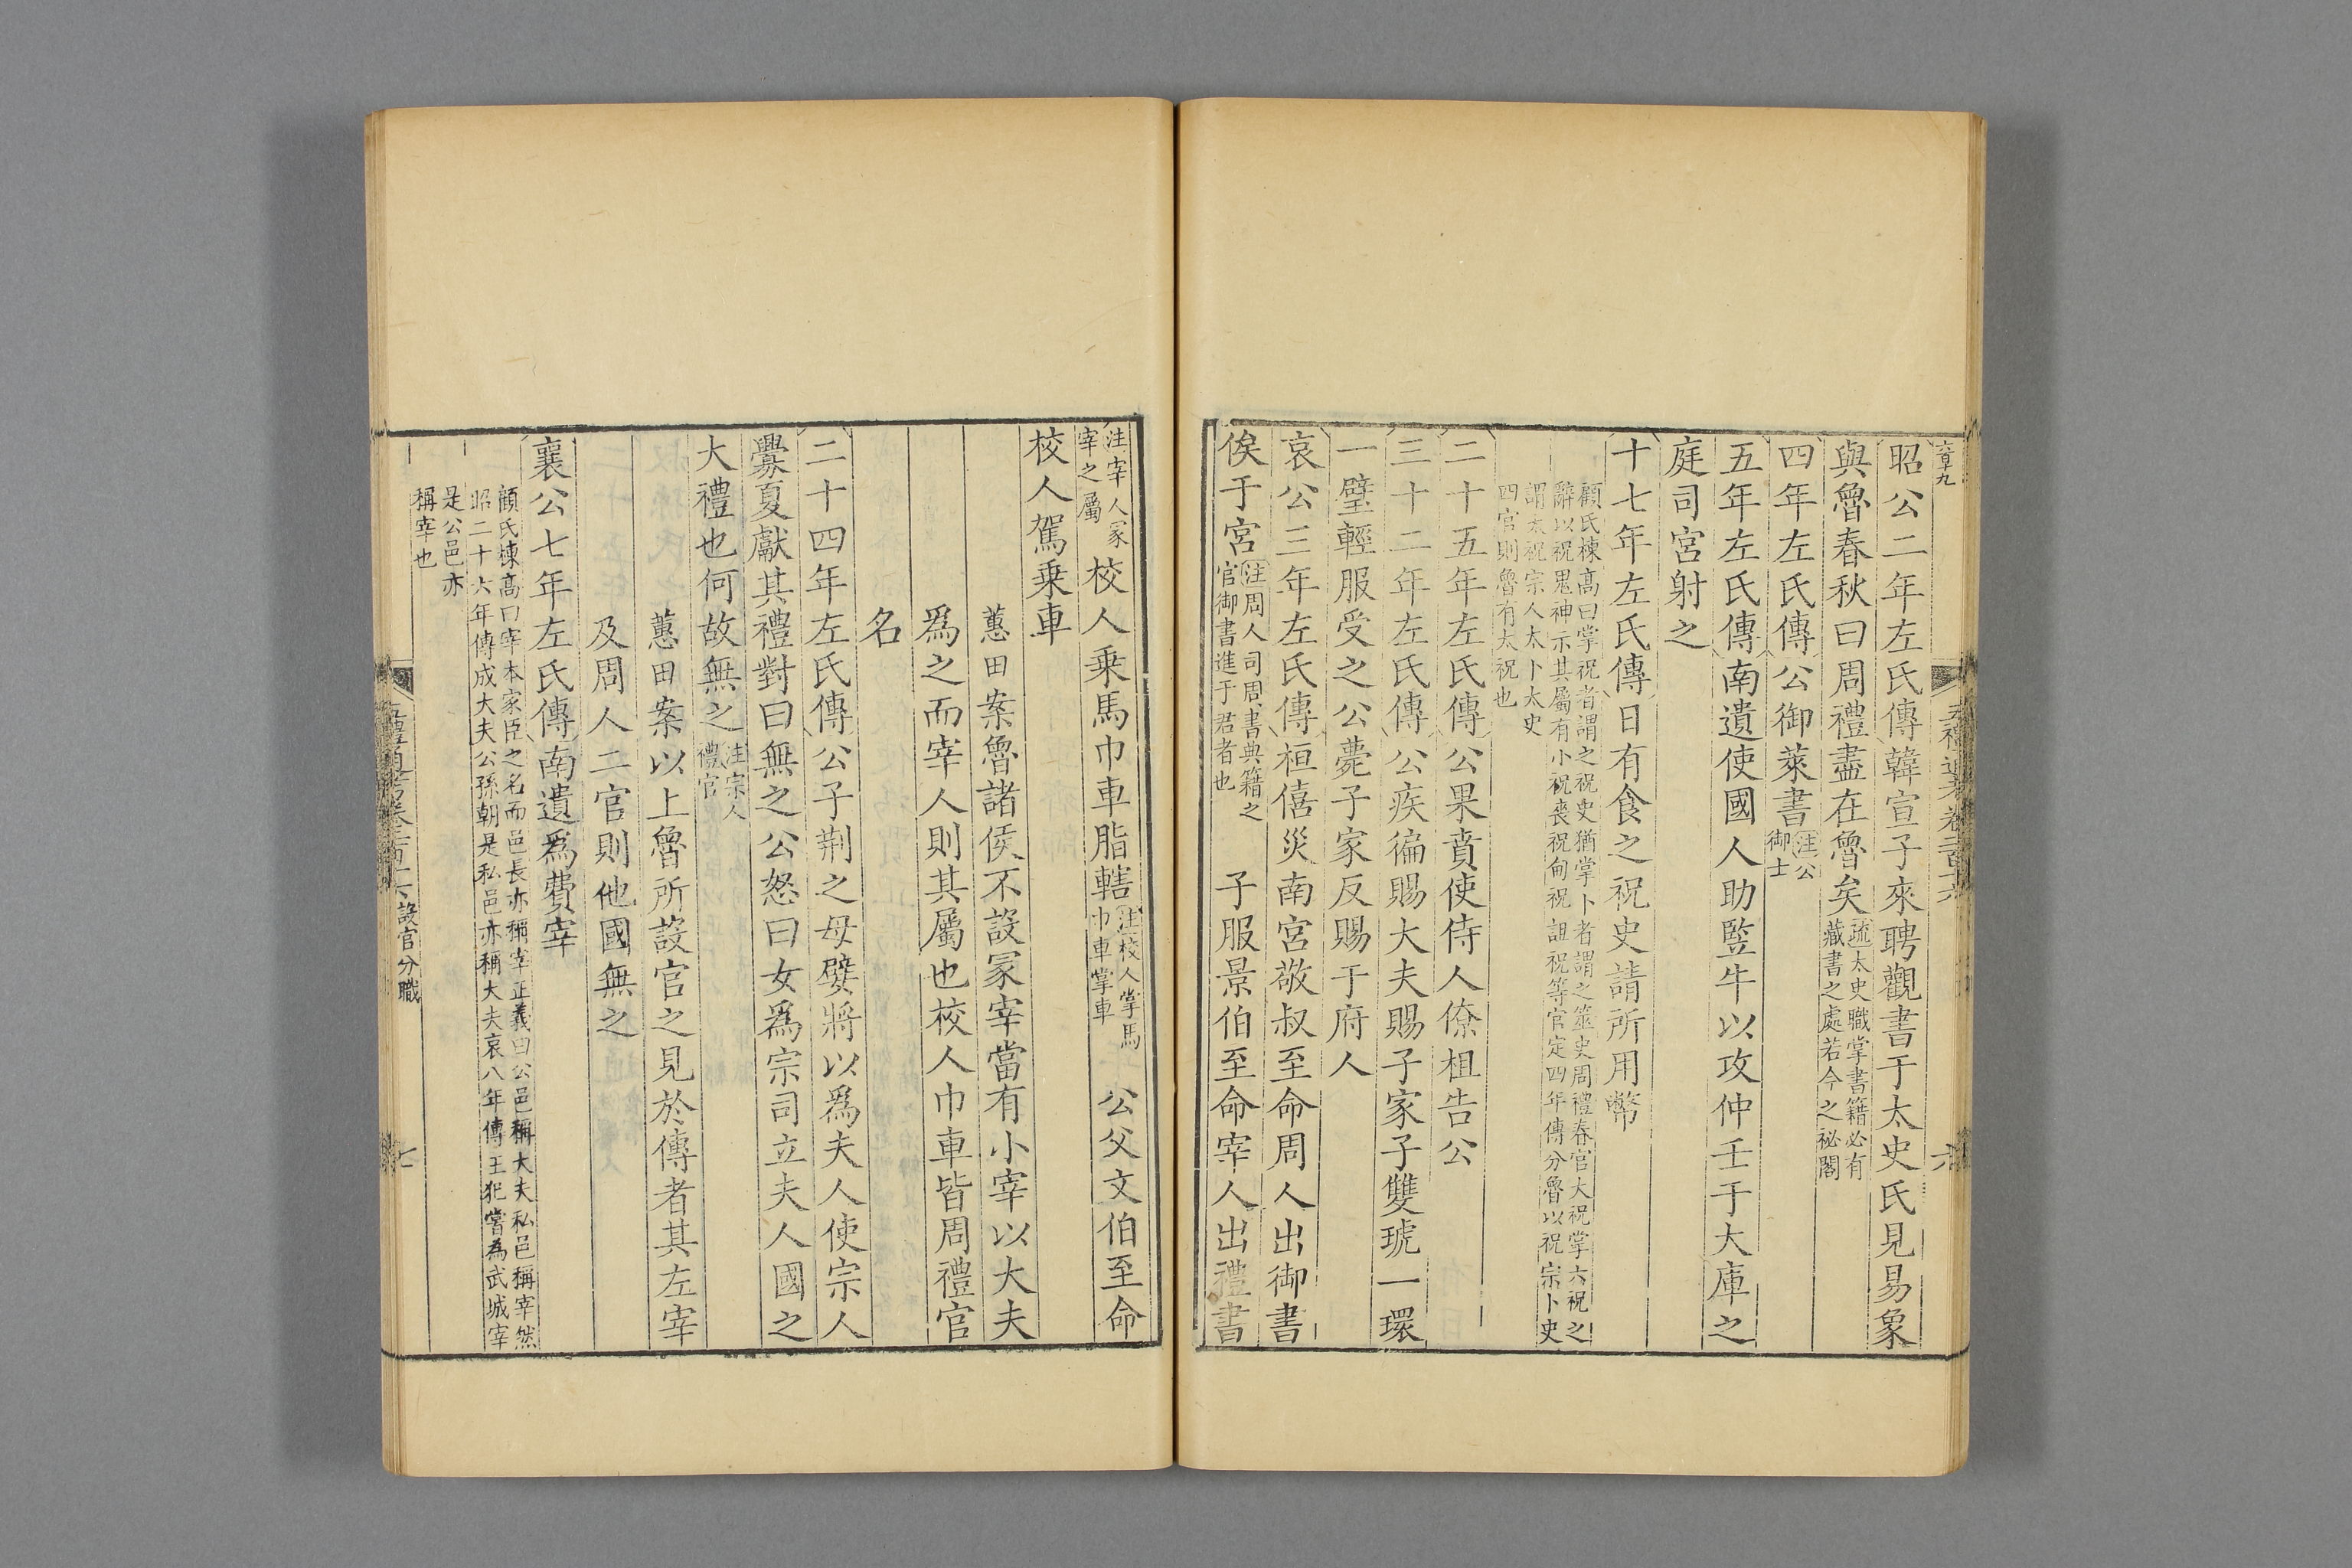 五禮通考卷二百十六
六
昭公二年左氏傳韓宣子來聘觀書于太史氏見易象
與魯春秋曰周禮盡在魯矣疏太史職掌書籍必有藏書之處若今之祕閣
四年左氏傳公御萊書注公御士
五年左氏傳南遺使國人助豎牛以攻仲壬于大庫之
庭司宮射之
十七年左氏傳日有食之祝史請所用幣
顧氏棟高曰掌祝者謂之祝史猶掌卜者謂之筮史周禮春官大祝掌六祝之
辭以祝鬼神示其屬有小祝喪祝甸祝詛祝等官定四年傳分魯以祝宗卜史
謂太祝宗人太卜太史
四官則魯有太祝也
二十五年左氏傳公果賁使侍人僚柤告公
三十二年左氏傳公疾徧賜大夫賜子家子雙琥一環
一璧輕服受之公薨子家反賜于府人
哀公三年左氏傳桓僖災南宮敬叔至命周人出御書
俟于宮注周人司周書典籍之官御書進于君者也 子服景伯至命宰人出禮書
注宰人冢宰之屬 校人乗馬巾車脂轄注校人掌馬巾車掌車 公父文伯至命
校人駕乗車
蕙田案魯諸侯不設冢宰當有小宰以大夫
爲之而宰人則其屬也校人巾車皆周禮官
名
二十四年左氏傳公子荆之母嬖將以爲夫人使宗人
釁夏獻其禮對曰無之公怒曰女爲宗司立夫人國之
大禮也何故無之注宗人禮官
蕙田案以上魯所設官之見於傳者其左宰
及周人二官則他國無之
襄公七年左氏傳南遺爲費宰
顧氏棟高曰宰本家臣之名而邑長亦稱宰正義曰公邑稱大夫私邑稱宰然
昭二十六年傳成大夫公孫朝是私邑亦稱大夫哀八年傳王犯嘗為武城宰
是公邑亦
稱宰也
設官分職
七